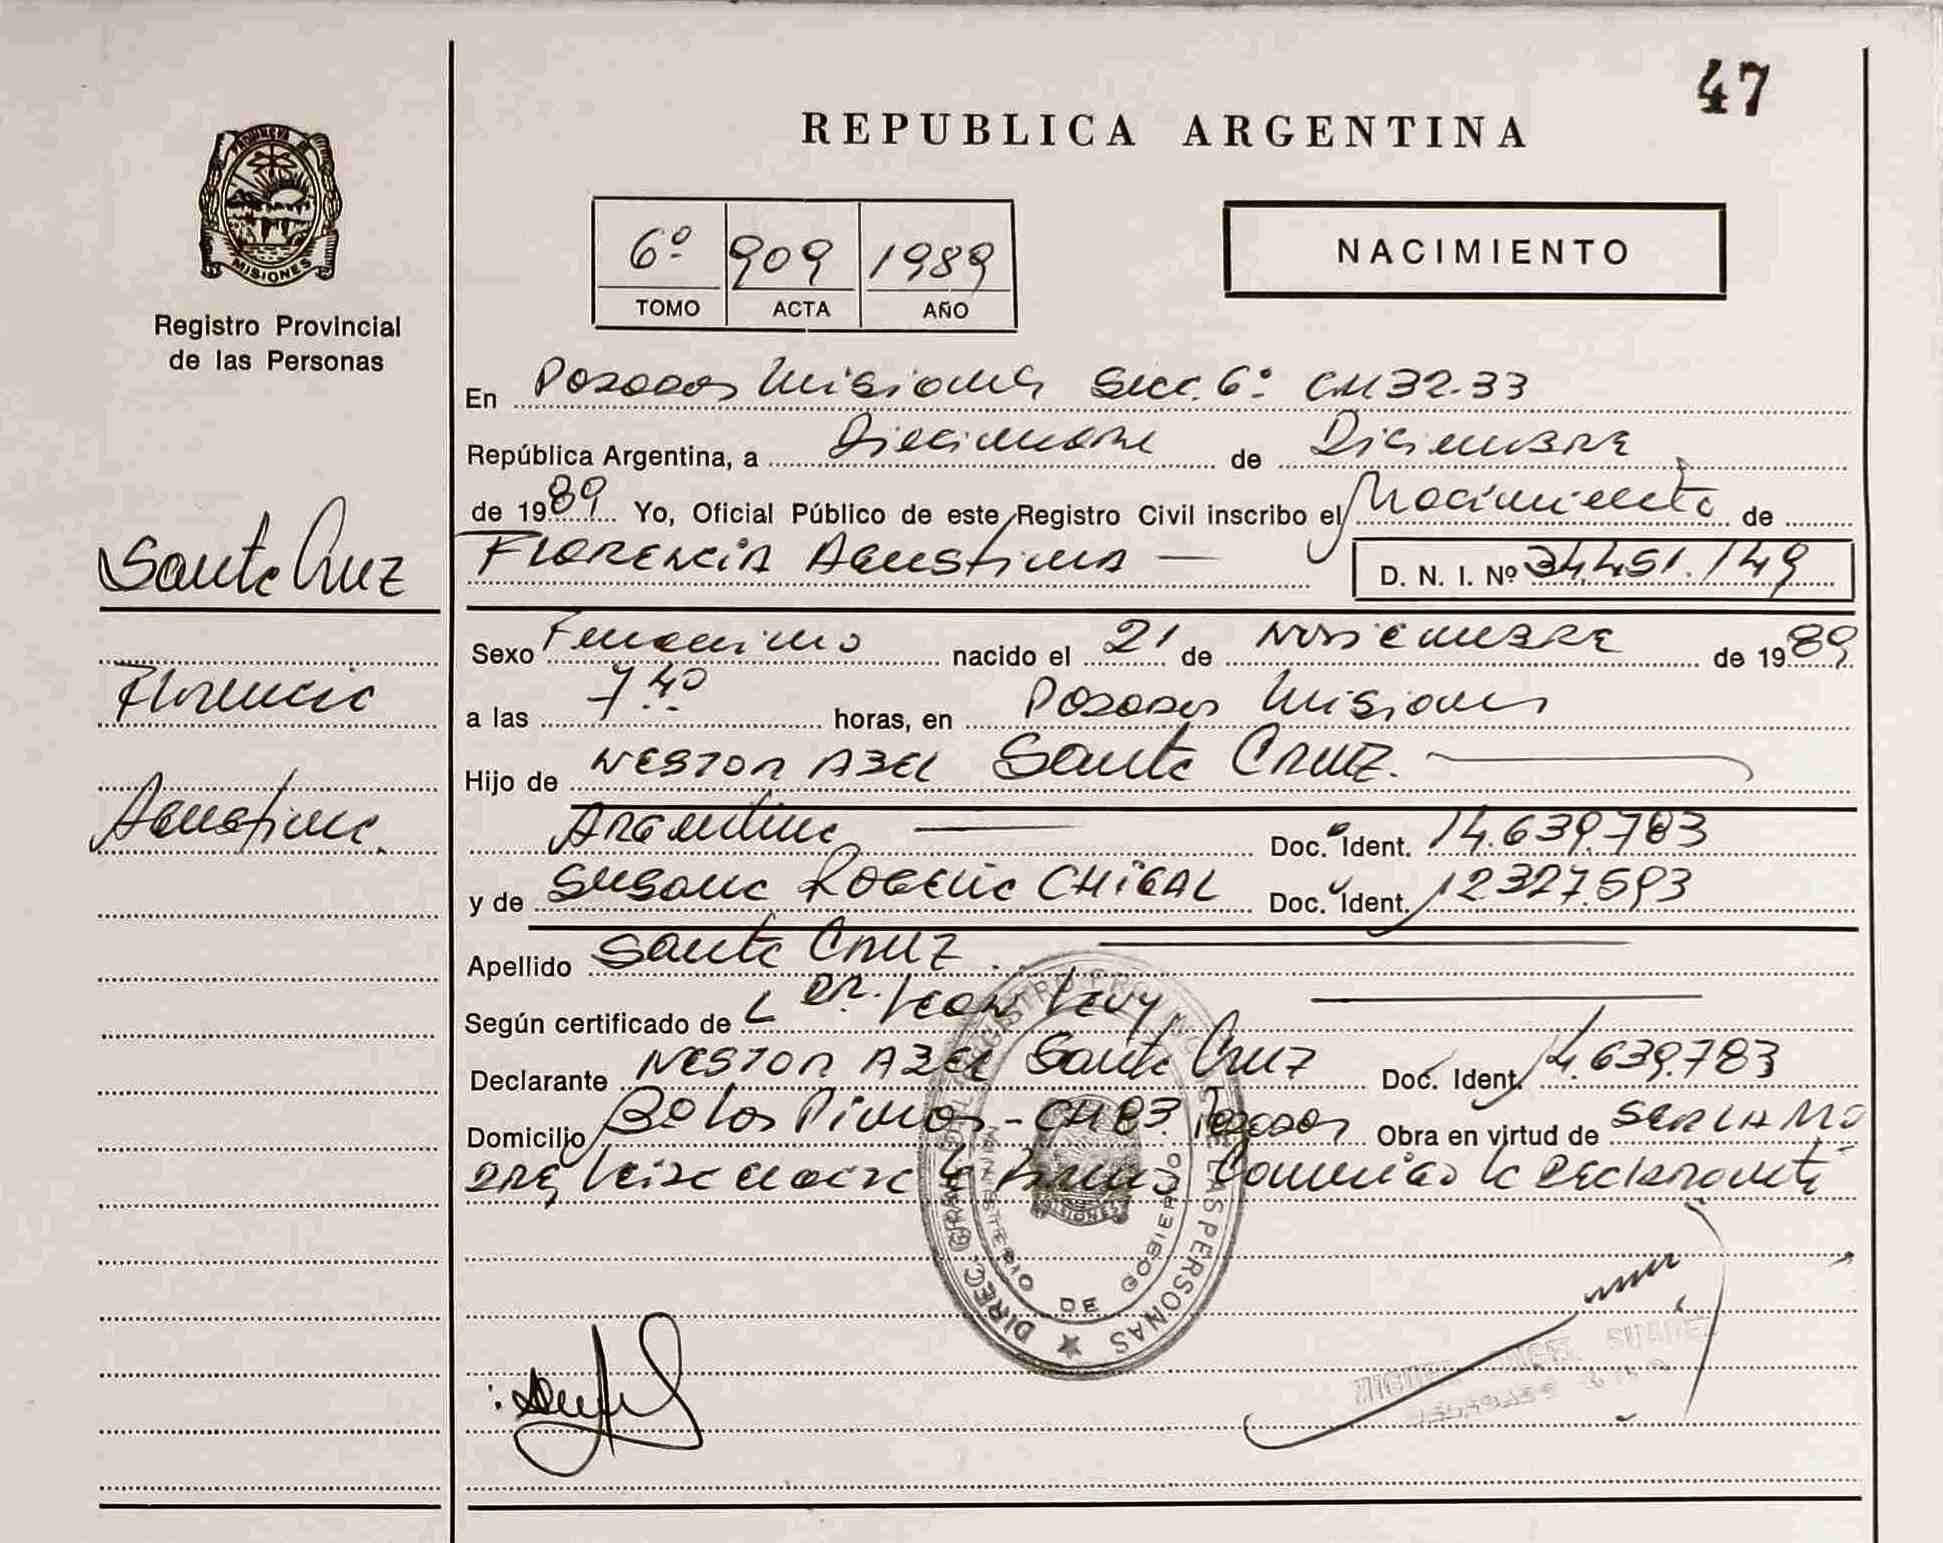 47
REPUBLICA ARGENTINA
6º 909 1989
TOMO ACTA AÑO
NACIMIENTO
MISIONES
Registro Provincial
de las Personas
Santa Cruz
Florencia
Agustina.
En Posadas Misiones Secc. 6º CH 32-33
República Argentina, a Diecinueve de Diciembre
de 1989 Yo, Oficial Público de este Registro Civil inscribo el Nacimiento de
Florencia Agustina — D. N. I. Nº 34.451.149
Sexo Femenino nacido el 21 de Noviembre de 1989
a las 7 40 horas, en Posadas Misiones
Hijo de Nestor Abel Santa Cruz.
Argentina — Doc. Ident. 14.639.783
y de Susana Rogelia CHIGAL Doc. Ident. 12327.593
Apellido Santa Cruz
Según certificado de L Dr. Leon Levy
Declarante Nestor Abel Santa Cruz Doc. Ident. 14.639.783
Domicilio Bº Los Pinos - CH 83. Posadas Obra en virtud de Ser la
la Declarante
DIREC. GRAL. DEL REGISTRO PROVINCIAL DE LAS PERSONAS
MINISTERIO DE GOBIERNO
MISIONES
MIGUEL ANGEL SUAREZ